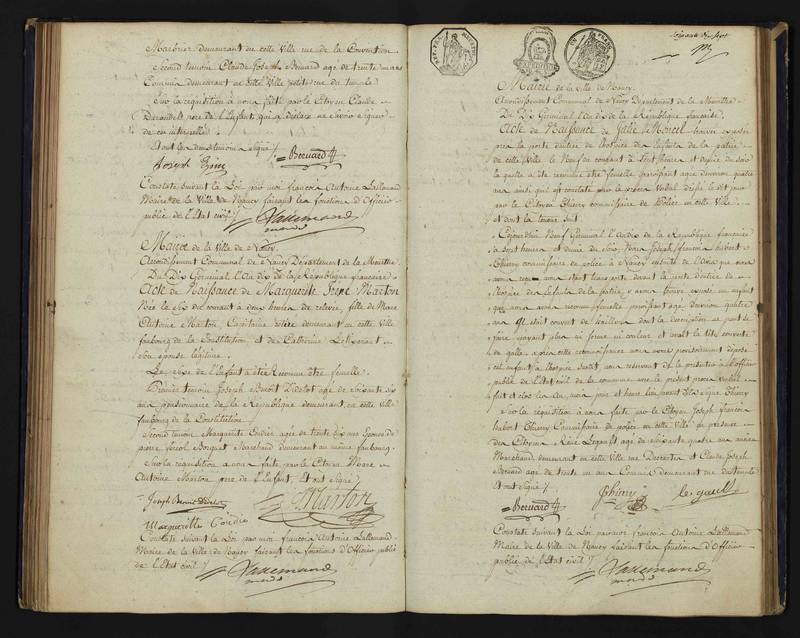 Marbrier demeurant en cette Ville rue de la Convention.
Second temoin Claude Joseph Bernard agé de trente un ans
Commis demeurant en cette Ville petite rue du
Sur la requisition à nous faite par le Citoyen Claude
pere de l'Enfant qui a déclaré ne savoir signer
de ce interpellé
Et ont les deux temoins signé /.
Joseph Bernard
Constaté suivant la Loi par moi françois Antoine Lallemand
Maire de la Ville de Nancy faisant les fonctions d'Officier
public de l'Etat civil /.
Lallemand
Mairie de la Ville de Nancy.
Arrondissement Communal de Nancy Département de la Meurthe
Du Dix Germinal l'an dix de la République française
Acte de Naissance de Marguerite Irene Marton
Née le Six du courant à deux heures de relevée, fille de Marc
Antoine Marton, Capitaine demeurant en cette Ville
faubourg de la Constitution et de Catherine
son épouse légitime.
Le sexe de l'Enfant a été Reconnu être femelle.
Premier temoin Joseph Benoit Didelot agé de soixante six
ans pensionnaire de la République demeurant en cette Ville
faubourg de la Constitution.
Second temoin Marguerite Cordier agée de trente six ans Epouse de
pierre Marchand demeurant au même faubourg.
Sur la requisition à nous faite par le Citoyen Marc
Antoine Marton pere de l'Enfant, Et ont signé /.
Joseph Benoit Didelot Marton
Marguerite Cordié
Constaté suivant la Loi par moi françois Antoine Lallemand
Maire de la Ville de Nancy faisant les fonctions d'Officier public
de l'Etat civil /.
Lallemand
soixante dix sept
Mairie de la Ville de Nancy.
Arrondissement Communal de Nancy Département de la Meurthe
Du Dix Germinal l'an dix de la République française.
Acte de Naissance de Julie Moncel trouvée exposée
près la porte d'entrée de l'hospice des Enfants de la patrie
de cette Ville le Neuf du courant à sept heures et demie du soir
laquelle a été reconnue être femelle paroissant agée d'environ quatre
ans ainsi qu'il est constaté par le procès verbal dressé le dit jour
par le Citoyen Thiery commissaire de Police en cette Ville
et dont la teneur suit.
Cejourd'hui Neuf Germinal l'an dix de la République française
à sept heures et demie du soir, Nous Joseph françois hubert
Thiery commissaire de police à Nancy de l'avis que nous
avons reçu nous étant transporté devant la porte d'entrée de
l'hospice des Enfants de la patrie, y avons trouvé exposé un enfant
que nous avons reconnu femelle paroissant agé d'environ quatre
ans Il étoit couvert de haillons dont la description ne peut se
faire n'ayant plus ni forme ni couleur et avoit la tête couverte
de galle après cette reconnoissance nous avons provisoirement déposé
cet enfant à l'hospice susdit nous réservant de le présenter à l'officier
public de l'Etat civil de la commune avec le présent procès verbal
fait et clos les an, mois jour et heure que avant dits Signé Thiery
Sur la réquisition à nous faite par le Citoyen Joseph françois
hubert Thiery Commissaire de police en cette Ville en présence
des Citoyens René Legault agé de soixante quatre ans ancien
Marchand, demeurant en cette Ville rue et Claude Joseph
Bernard agé de trente un ans Commis demeurant rue
Et ont Signé /.
Bernard Thiery Le gault
Constaté suivant la Loi par moi françois Antoine Lallemand
Maire de la Ville de Nancy faisant les fonctions d'Officier
public de l'Etat civil /.
Lallemand